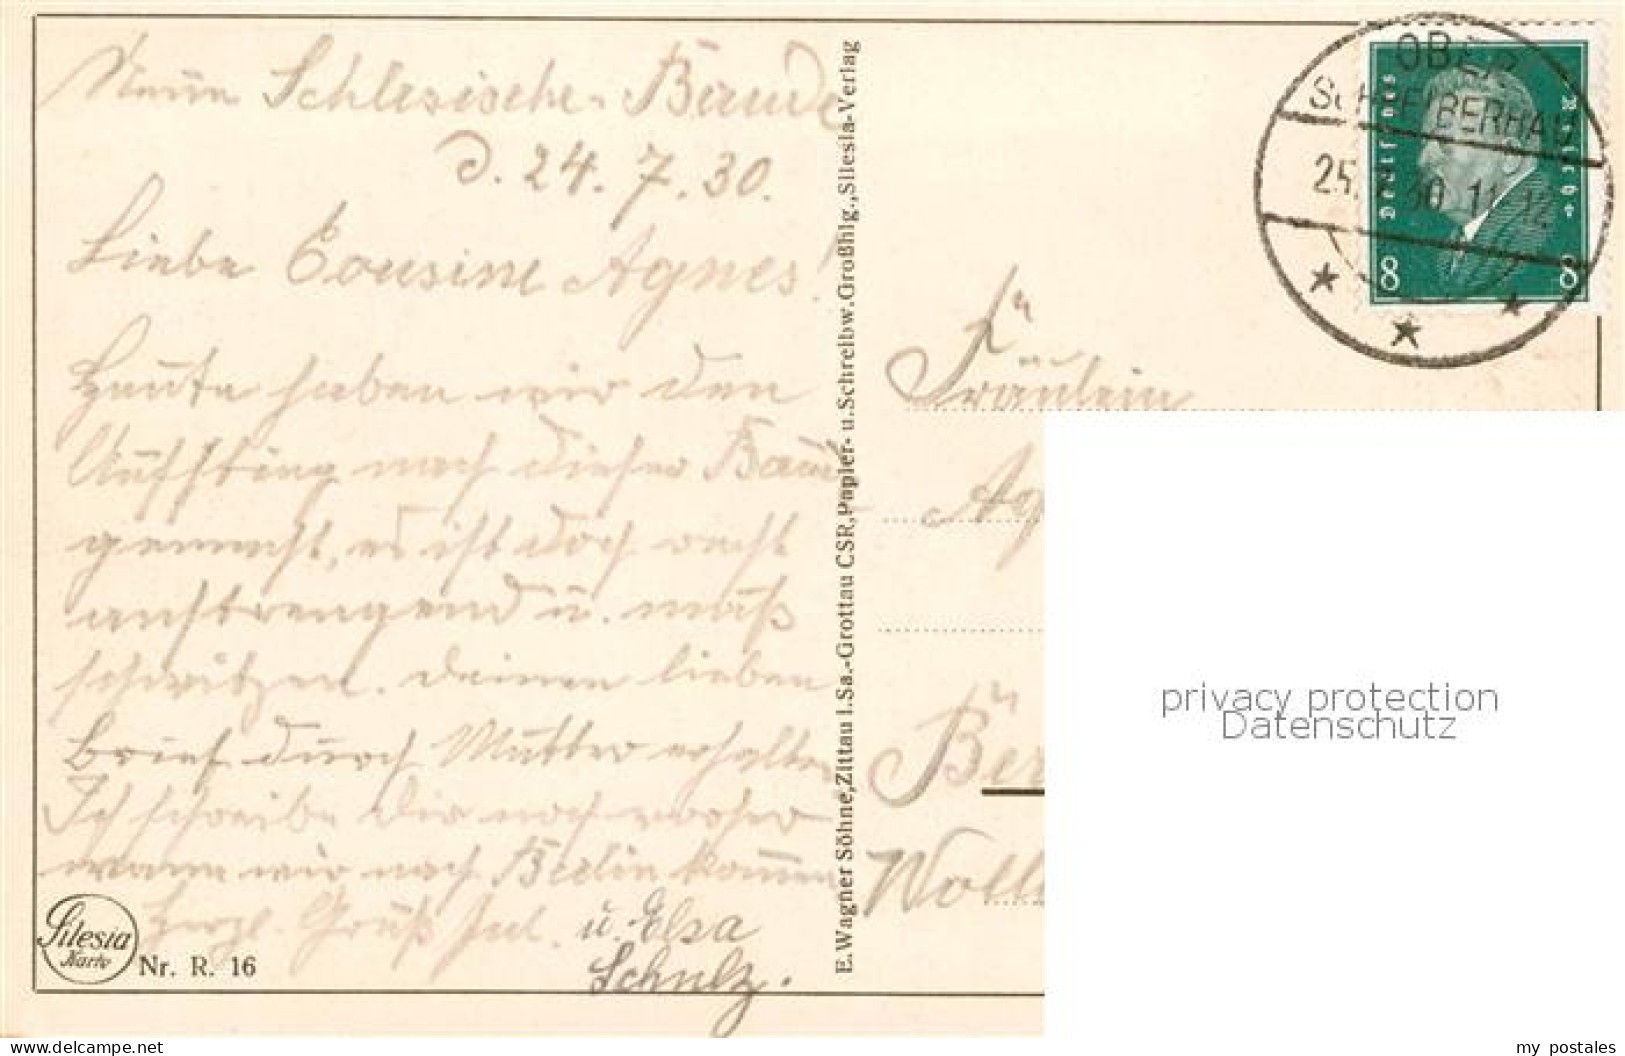 Neue Schlesische-Baude
d. 24. 7. 30.
Liebe Cousine Agnes!
Heute haben wir den
Aufstieg nach dieser Baude
gemacht, es ist doch recht
anstrengend u. muß
schwitzen. Deinen lieben
Brief durch Mutter erhalten
Ich schreibe Dir noch vorher
wann wir nach Berlin kommen
Herzl. Gruß Jul. u. Elsa
Schulz.
Silesia
Karte
Nr. R. 16
E. Wagner Söhne, Zittau i. Sa.-Grottau CSR, Papier- u. Schreibw. Großhlg., Silesia-Verlag
OBER
SCHREIBERHAU
25. 7. 30. 11-12
Deutsches
Reich
8
8
Fräulein
Ag
Ber
Woll
privacy protection
Datenschutz
www.delcampe.net
my_postales